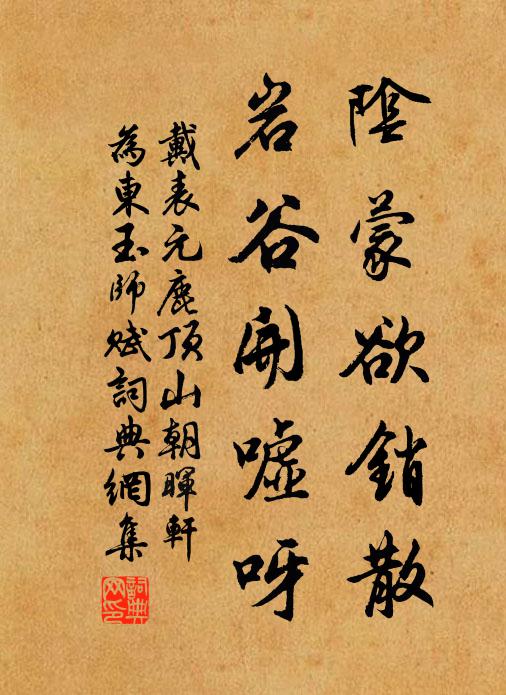 陰蒙欲銷散
岩谷開噓呀
戴表元鹿頂山朝暉軒
為東玉師賦詞典網集
詞典網印